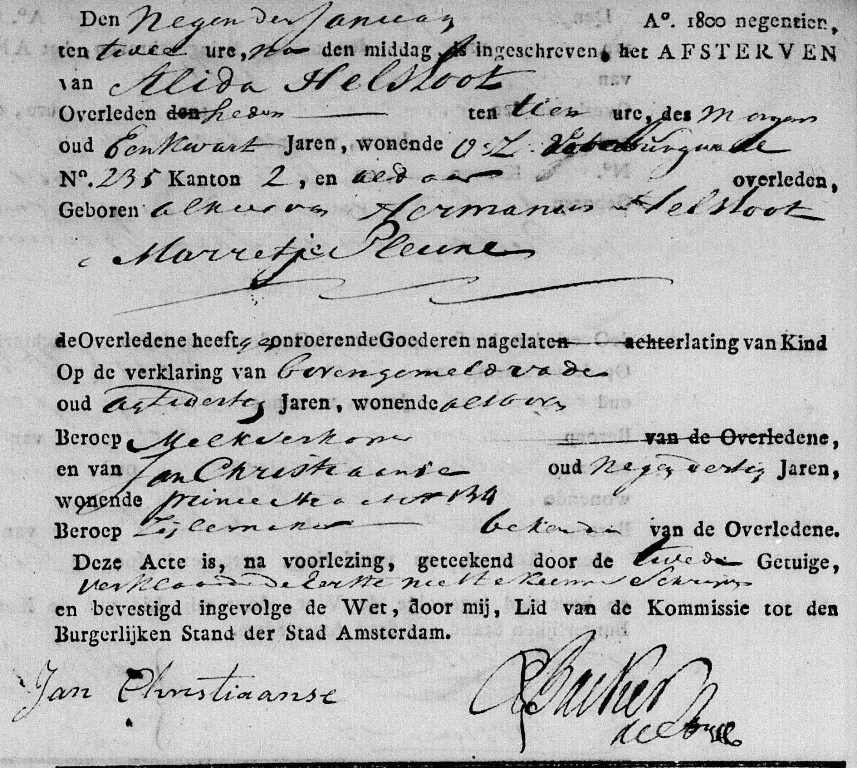 Den Negenden Januarij A°. 1800 negentien,
ten twee ure, na den middag is ingeschreven, het AFSTERVEN
van Alida Helsloot
Overleden den heden ten tien ure, des Morgens
oud Een Kwart Jaren, wonende O.Z. burgwal
N°. 235 Kanton 2, en aldaar overleden,
Geboren alhier van Hermanus Helsloot
Marretje Pleune
de Overledene heeft geen onroerende Goederen nagelaten achterlating van Kind
Op de verklaring van bovengemelde vader
oud agtendertig Jaren, wonende alsboven
Beroep Melkverkoper van de Overledene,
en van Jan Christiaanse oud Negendertig Jaren,
wonende prince 134
Beroep bekende van de Overledene.
Deze Acte is, na voorlezing, geteekend door de tweede Getuige,
verklaarde de Eerste niet te kunnen Schrijven
en bevestigd ingevolge de Wet, door mij, Lid van de Kommissie tot den
Burgerlijken Stand der Stad Amsterdam.
Jan Christiaanse Backer